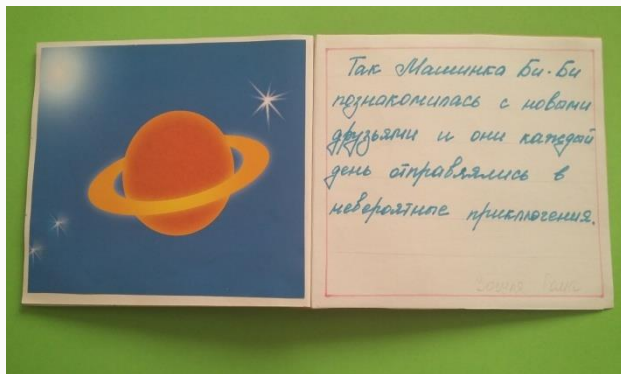 Так Машинка Би-Би
познакомилась с новыми
друзьями и они каждый
день отправлялись в
невероятные приключения.